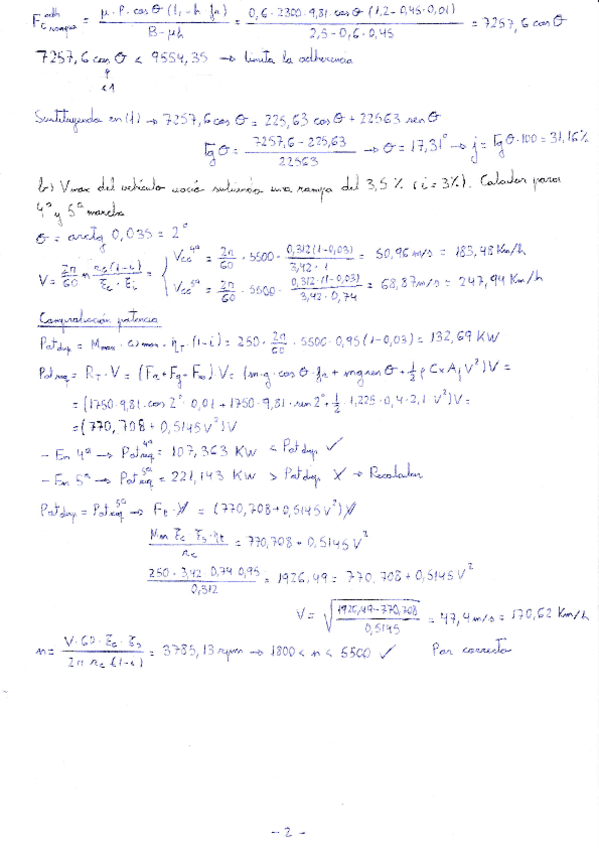 F_c remolque^adh = μ · P · cos θ (l₁ - h f_r) / (B - μh) = 0,6 · 2300 · 9,81 · cos θ (1,2 - 0,45 · 0,01) / (2,5 - 0,6 · 0,45) = 7257,6 cos θ
7257,6 cos θ < 9554,35 → limita la adherencia
<1
Sustituyendo en (1) → 7257,6 cos θ = 225,63 cos θ + 22563 sen θ
tg θ = (7257,6 - 225,63) / 22563 → θ = 17,31° → j = tg θ · 100 = 31,16 %
b) Vmax del vehículo vacío subiendo una rampa del 3,5 % (i = 3%). Calcular para
4ª y 5ª marcha
θ = arctg 0,035 = 2°
V = 2π/60 n r_c (1-i) / (ξ_c · ξ_i) =
V_cc^4ª = 2π/60 · 5500 · 0,312 (1-0,03) / (3,42 · 1) = 50,96 m/s = 183,48 Km/h
V_cc^5ª = 2π/60 · 5500 · 0,312 · (1-0,03) / (3,42 · 0,74) = 68,87 m/s = 247,94 Km/h
Comprobación potencia
Pot disp = Mmax · ω max · η_T · (1-i) = 250 · 2π/60 · 5500 · 0,95 (1-0,03) = 132,69 KW
Pot req = R_T · V = (F_r + F_g + F_w) V = (m·g · cos θ · f_r + mg sen θ + ½ ρ C x A_f V²) V =
= (1750 · 9,81 · cos 2° · 0,01 + 1750 · 9,81 · sen 2° + ½ · 1,225 · 0,4 · 2,1 V²) V =
= (770,708 + 0,5145 V²) V
- En 4ª → Pot req^4ª = 107,363 KW < Pot disp ✓
- En 5ª → Pot req^5ª = 221,143 KW > Pot disp X → Recalcular
Pot disp = Pot req^5ª → F_t · V = (770,708 + 0,5145 V²) V
Mm ξ_c · ξ_5 · η_t / r_c = 770,708 + 0,5145 V²
250 · 3,42 · 0,74 · 0,95 / 0,312 = 1926,49 = 770,708 + 0,5145 V²
V = √((1926,49 - 770,708) / 0,5145) = 47,4 m/s = 170,62 Km/h
n = V · 60 · ξ_c · ξ_5 / (2π r_c (1-i)) = 3785,13 rpm → 1800 < n < 5500 ✓ Par correcto
- 2 -